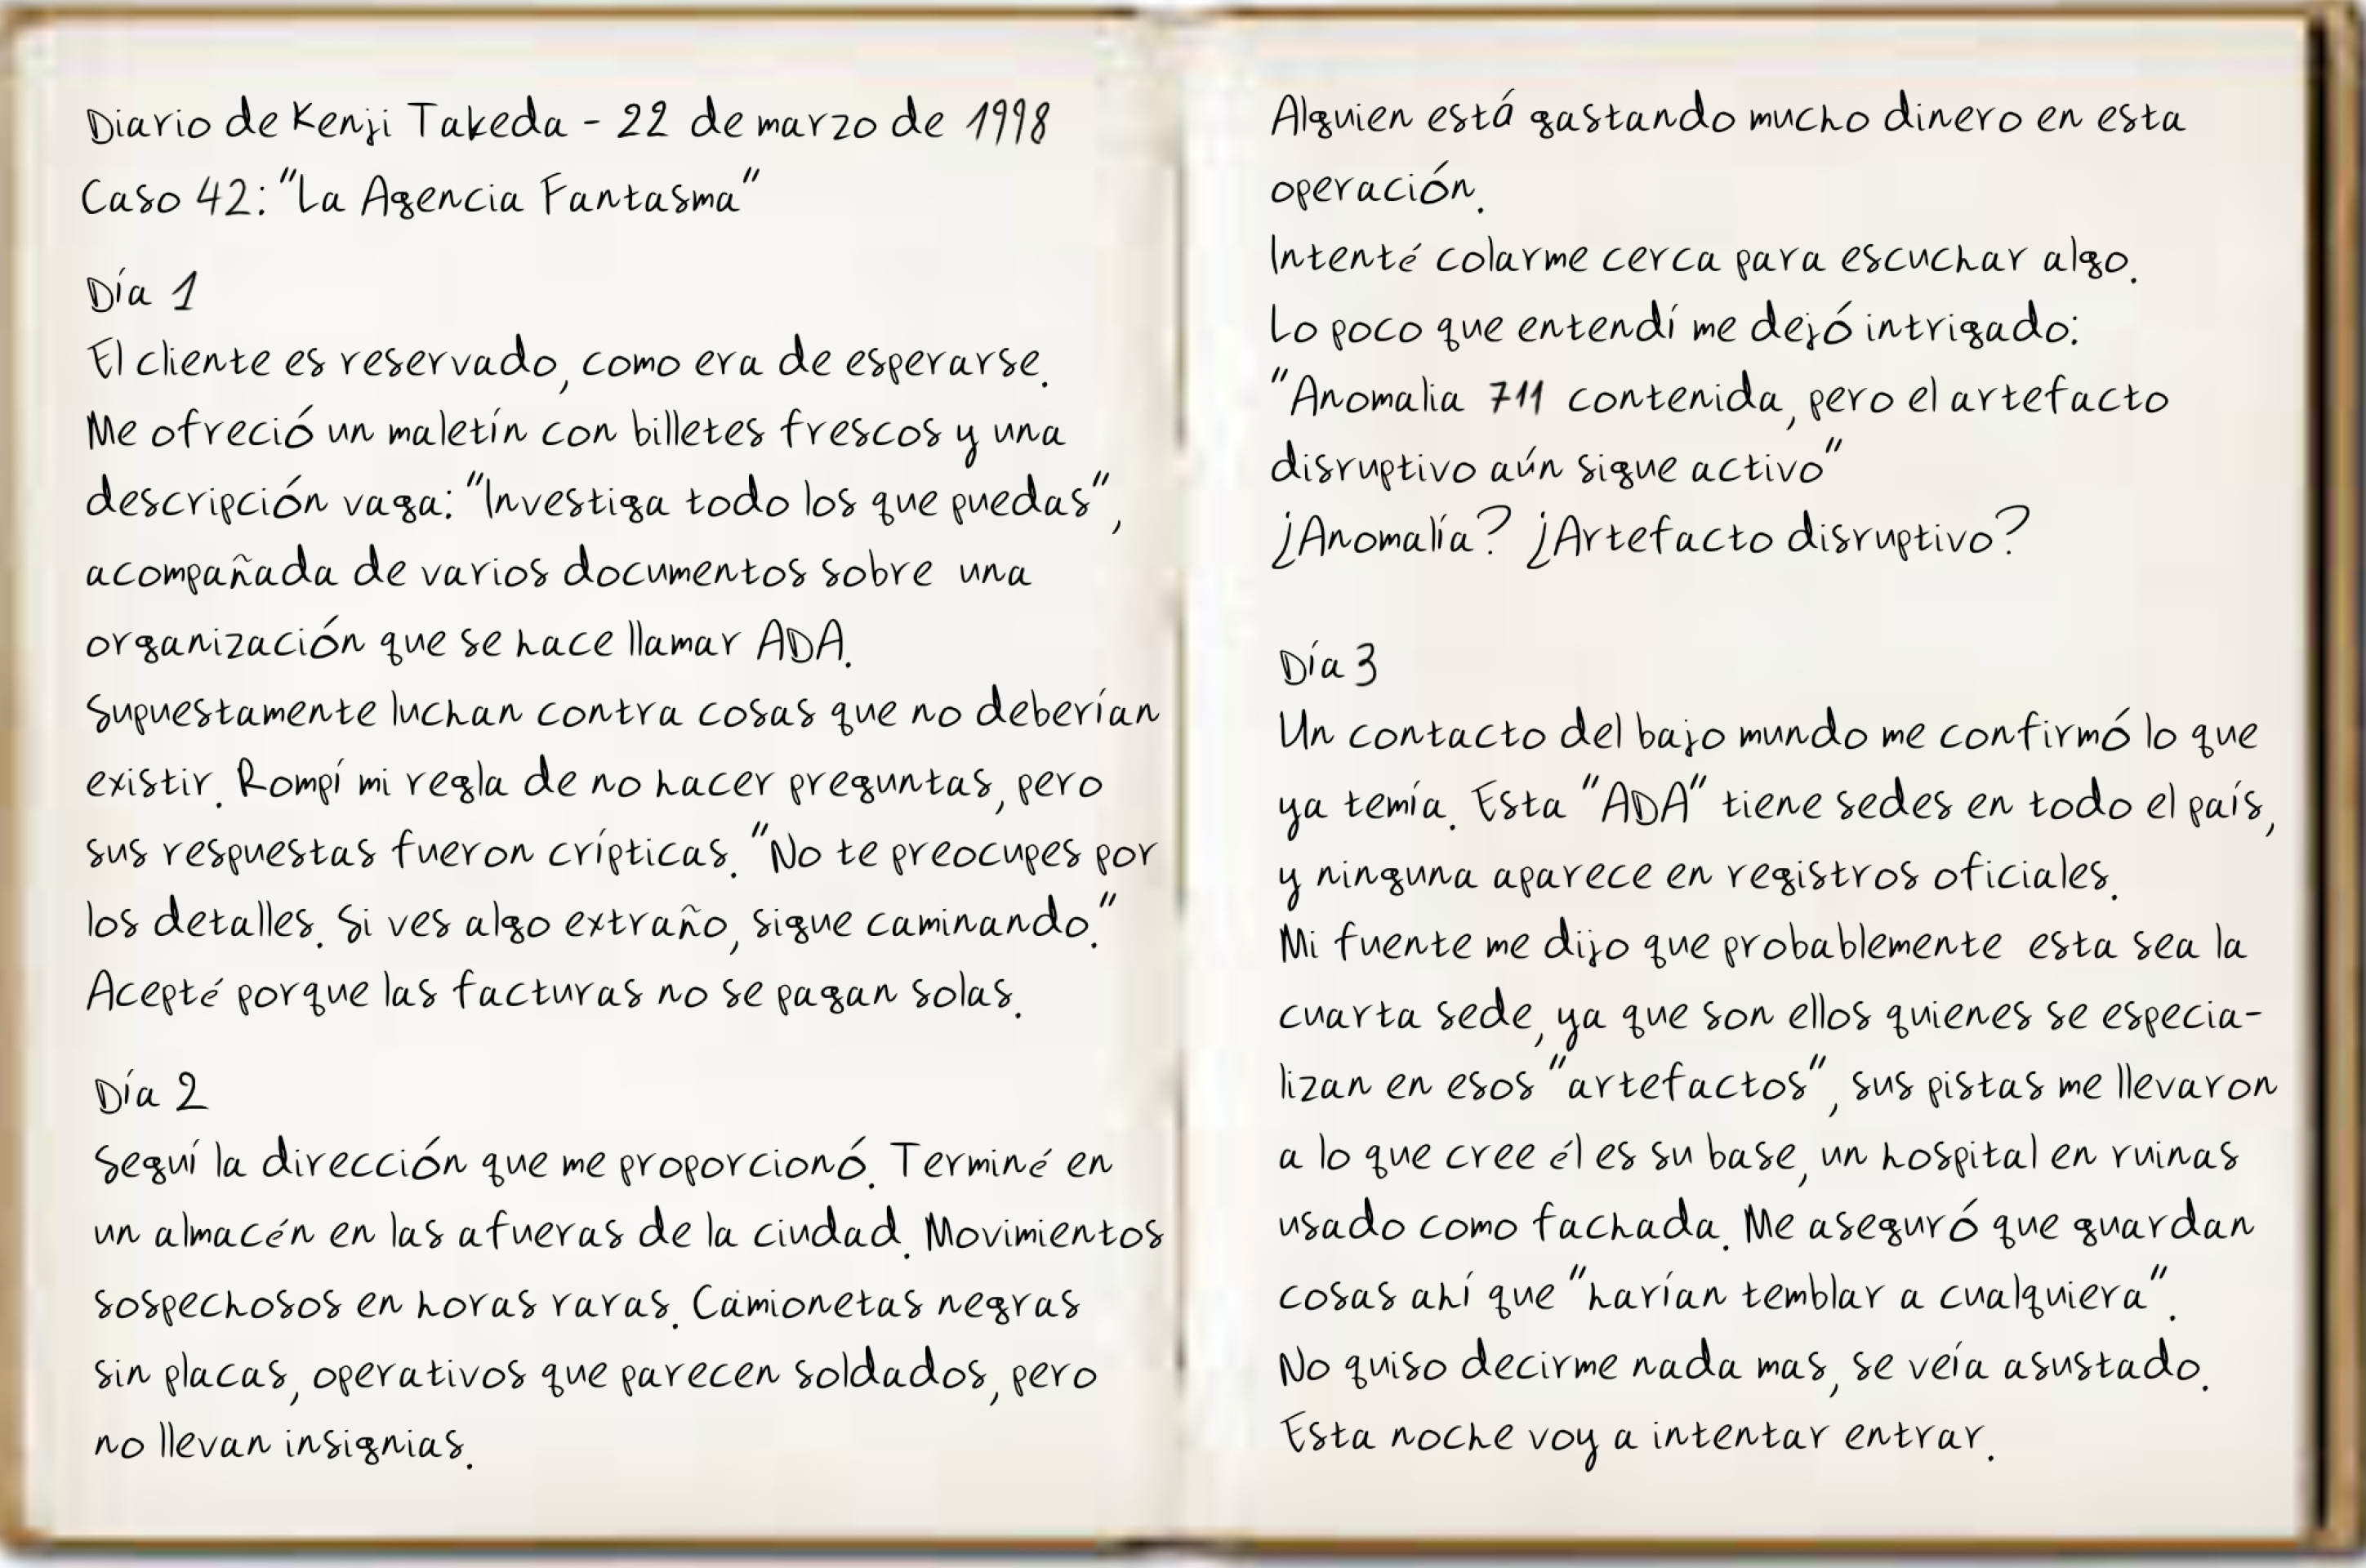 Diario de Kenji Takeda - 22 de marzo de 1998
Caso 42: "La Agencia Fantasma"
Día 1
El cliente es reservado, como era de esperarse.
Me ofreció un maletín con billetes frescos y una
descripción vaga: "Investiga todo los que puedas",
acompañada de varios documentos sobre una
organización que se hace llamar ADA.
Supuestamente luchan contra cosas que no deberían
existir. Rompí mi regla de no hacer preguntas, pero
sus respuestas fueron crípticas. "No te preocupes por
los detalles. Si ves algo extraño, sigue caminando."
Acepté porque las facturas no se pagan solas.
Día 2
Seguí la dirección que me proporcionó. Terminé en
un almacén en las afueras de la ciudad. Movimientos
sospechosos en horas raras. Camionetas negras
sin placas, operativos que parecen soldados, pero
no llevan insignias.
Alguien está gastando mucho dinero en esta
operación.
Intenté colarme cerca para escuchar algo.
Lo poco que entendí me dejó intrigado:
"Anomalia 711 contenida, pero el artefacto
disruptivo aún sigue activo"
¿Anomalía? ¿Artefacto disruptivo?
Día 3
Un contacto del bajo mundo me confirmó lo que
ya temía. Esta "ADA" tiene sedes en todo el país,
y ninguna aparece en registros oficiales.
Mi fuente me dijo que probablemente esta sea la
cuarta sede, ya que son ellos quienes se especia-
lizan en esos "artefactos", sus pistas me llevaron
a lo que cree él es su base, un hospital en ruinas
usado como fachada. Me aseguró que guardan
cosas ahí que "harían temblar a cualquiera".
No quiso decirme nada mas, se veía asustado.
Esta noche voy a intentar entrar.